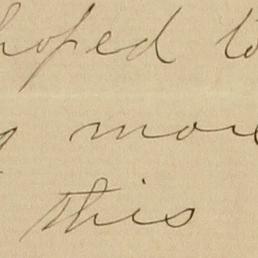 hoped to
more
this